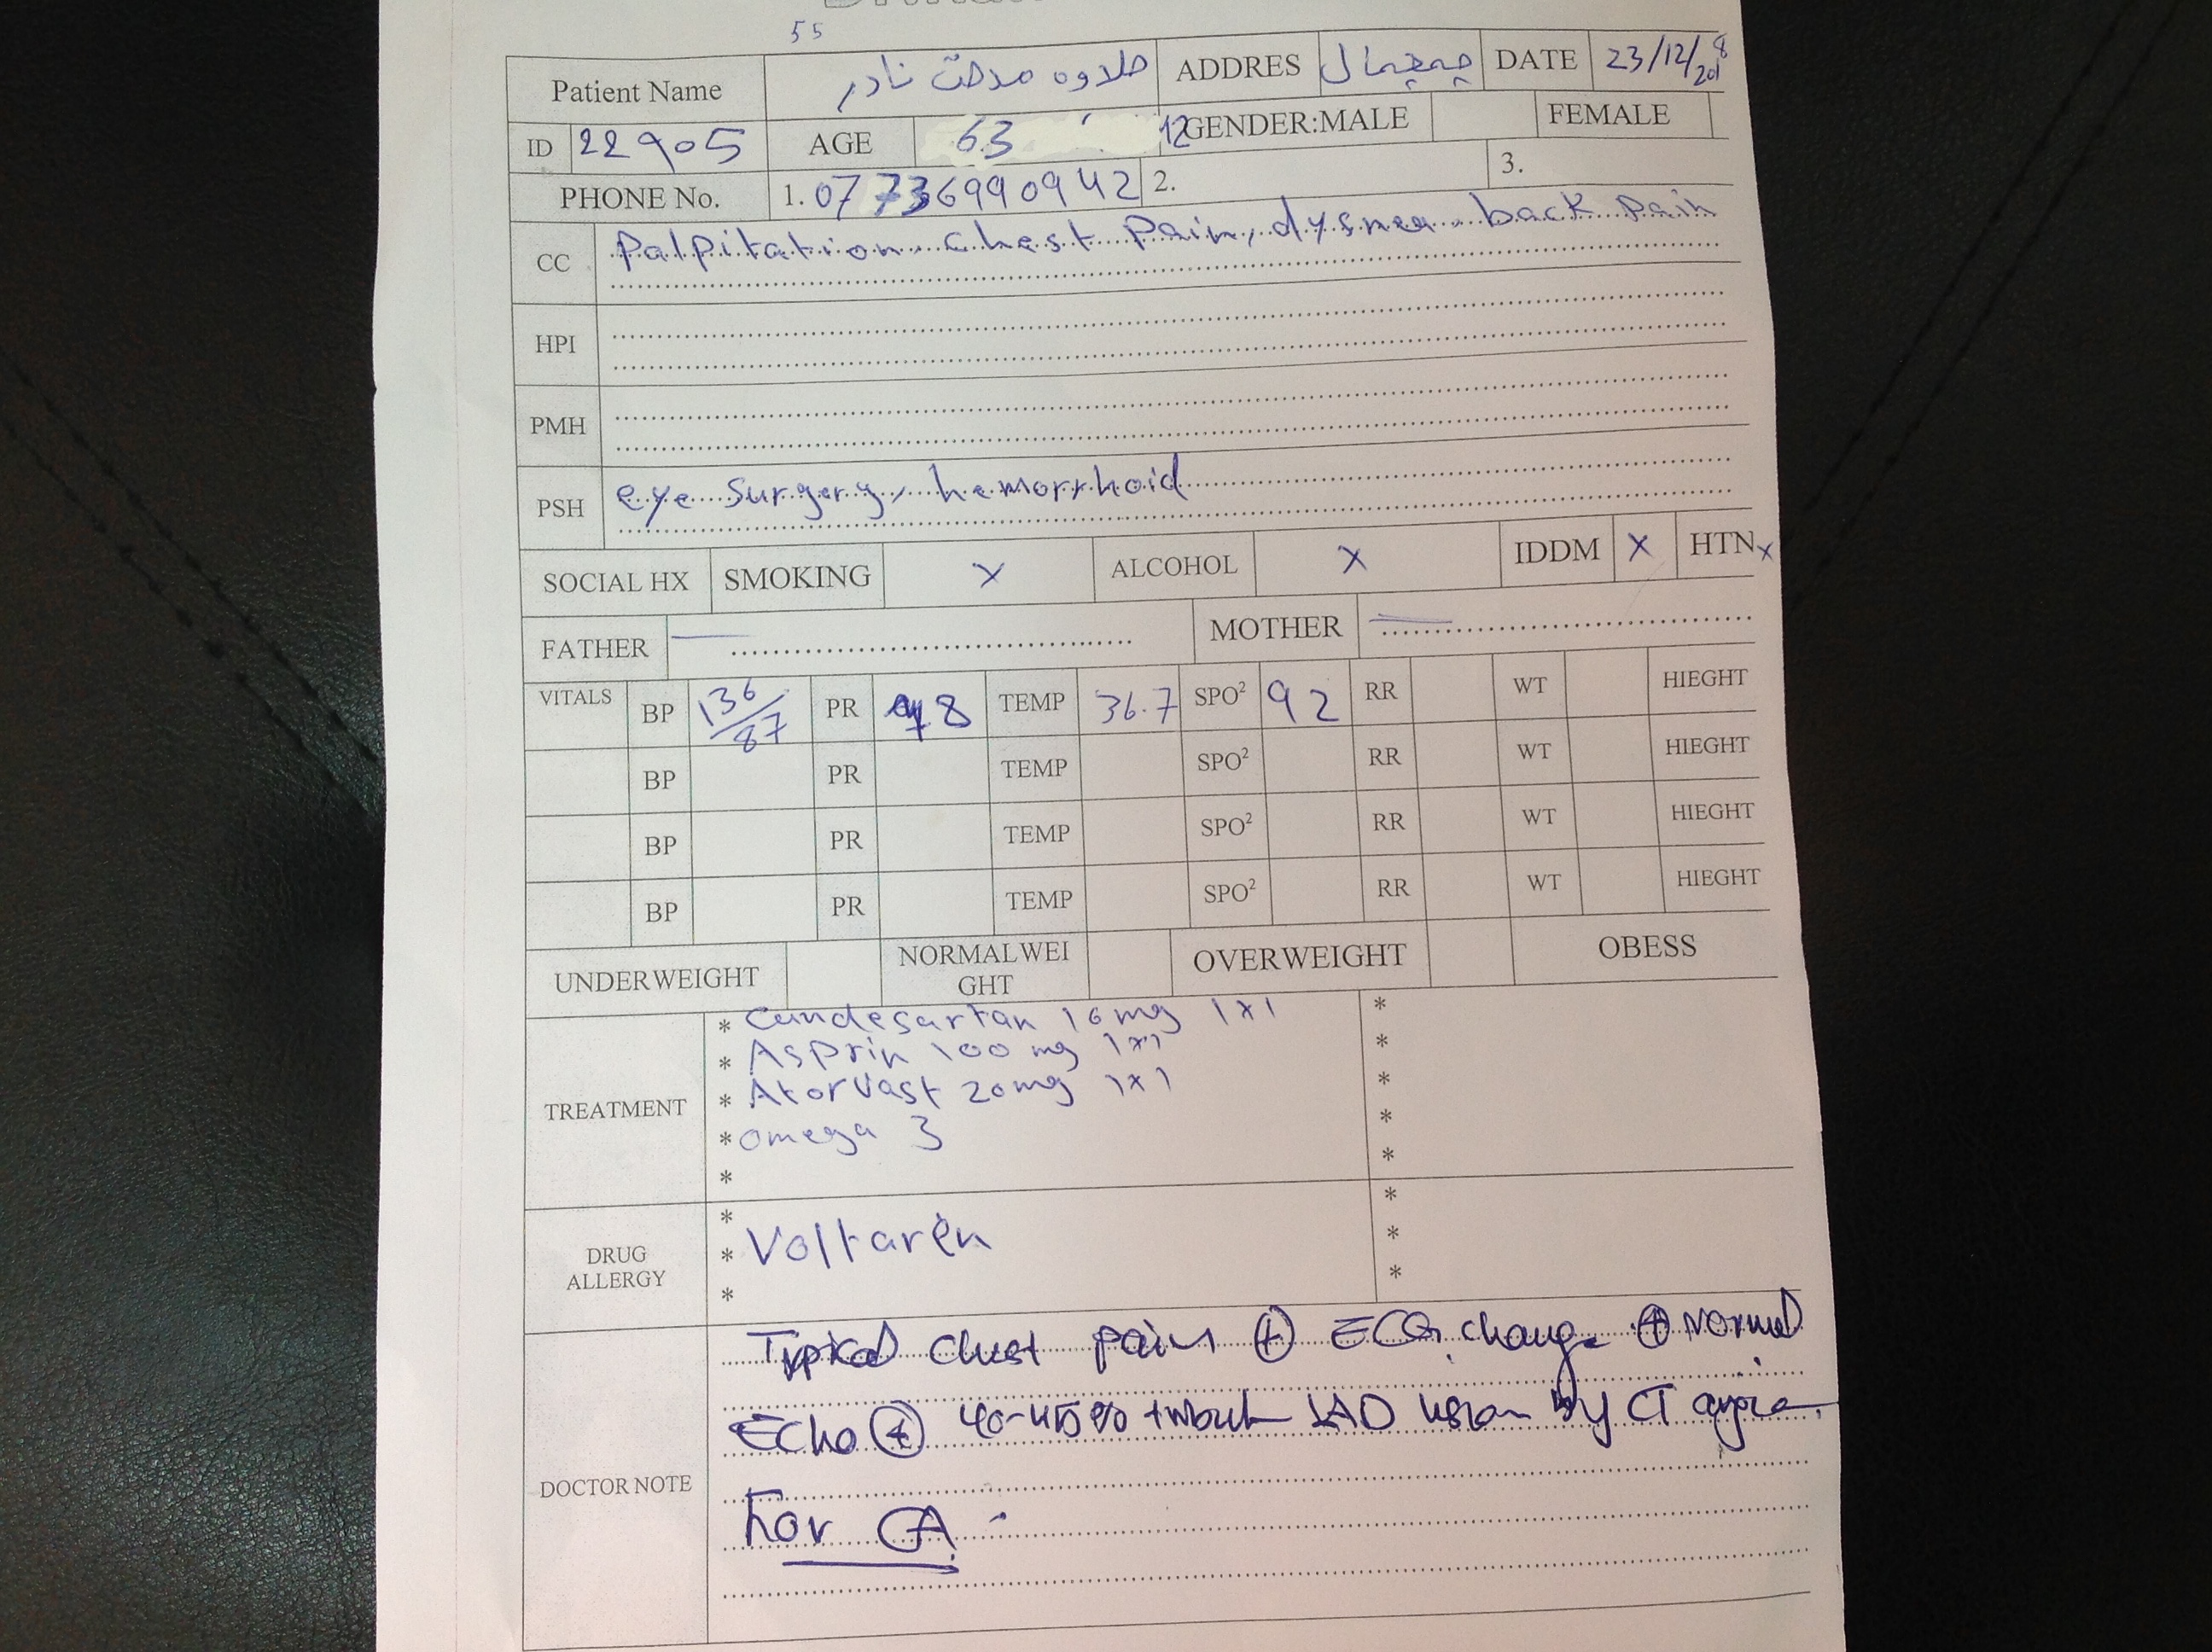 55
Patient Name حلاوه مدحت نادر ADDRES چمچمال DATE 23/12/2018
ID 22905 AGE 63 12 GENDER:MALE FEMALE
PHONE No. 1. 07736990942 2. 3.
CC Palpitation, chest Pain, dysnea, back pain
HPI
PMH
PSH eye surgery, hemorrhoid
SOCIAL HX SMOKING X ALCOHOL X IDDM X HTN X
FATHER — MOTHER —
VITALS BP 136/87 PR 98 TEMP 36.7 SPO² 92 RR WT HIEGHT
BP PR TEMP SPO² RR WT HIEGHT
BP PR TEMP SPO² RR WT HIEGHT
BP PR TEMP SPO² RR WT HIEGHT
UNDERWEIGHT NORMALWEIGHT OVERWEIGHT OBESS
TREATMENT
* Candesartan 16 mg 1x1 *
* Asprin 100 mg 1x1 *
* Atorvast 20mg 1x1 *
* omega 3 *
* *
DRUG ALLERGY
* *
* Voltaren *
* *
DOCTOR NOTE
Typical chest pain ⊕ ECG change ⊕ Normal
Echo ⊕ 40-45% LAD lesion by CT
For CA